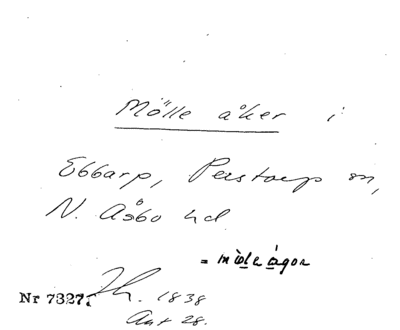 Mölle åker i
Ebbarp, Perstorp sn,
N. Åsbo hd
= mọ̈le ågor
Nr 7327
Th. 1838
Ant 28.